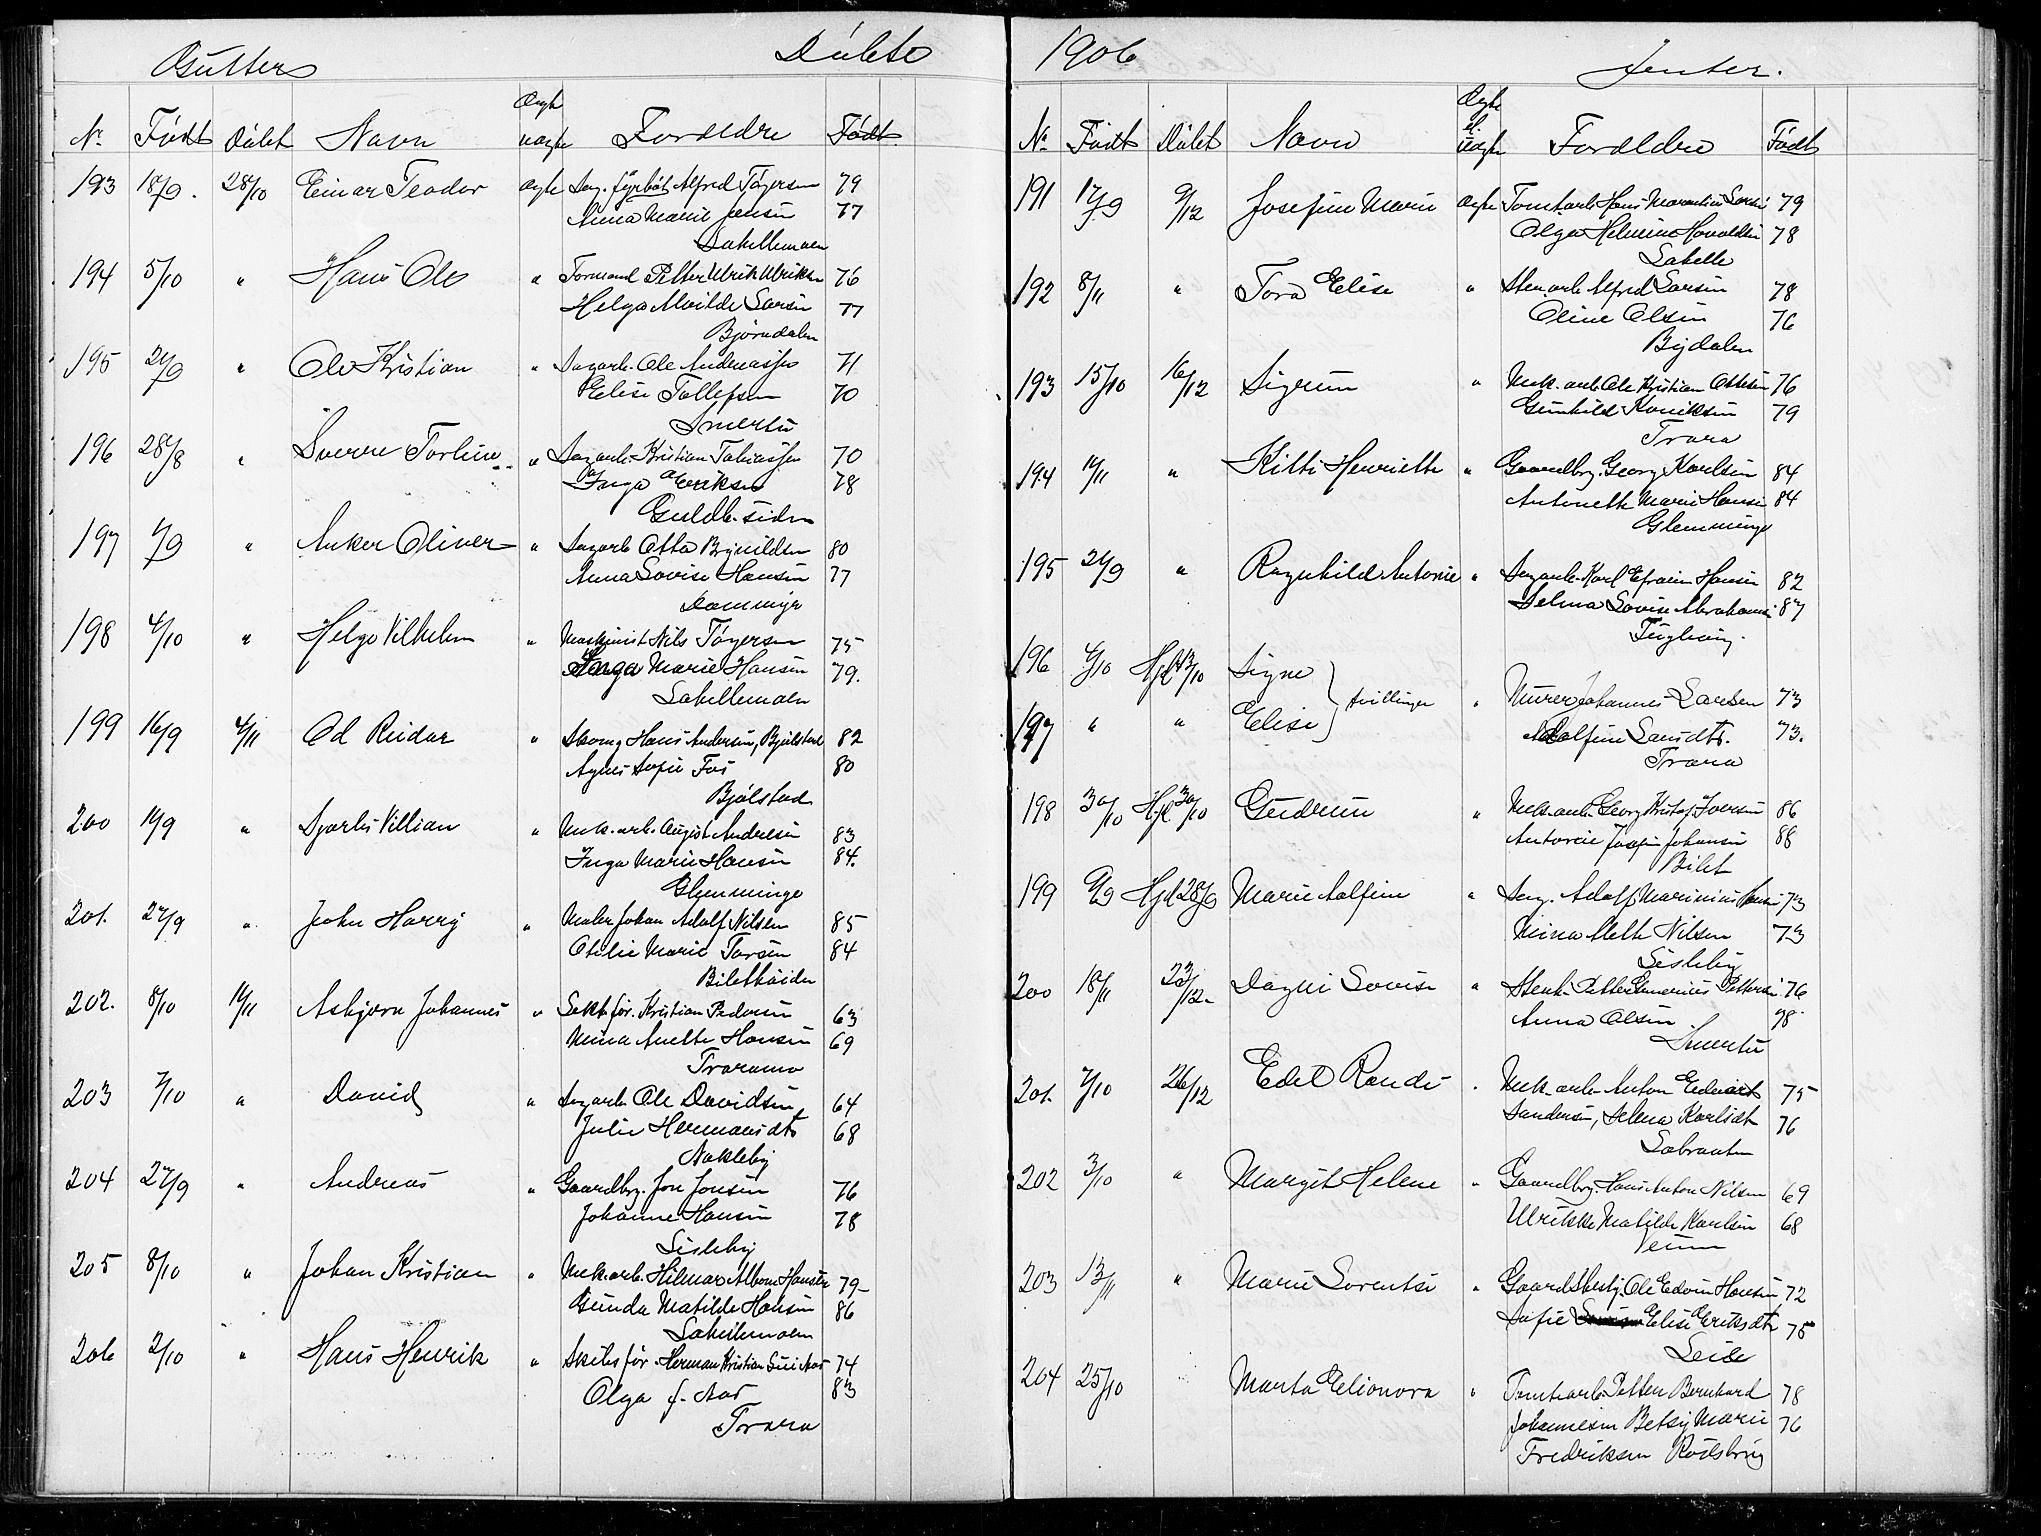 Gutter Døbte
No Født Døbt Navn Ægte uægte Forældre Født
193 18/9. 28/10 Einar Teodor ægte Sag. fyrbøt. Alfred Tøgersen 79
Anna Marie Jensen 77
Labellemoen
194 5/10 " Hans Ole " Formand Petter Ulrik Ulriksen 76
Helga Alvilde Larsen 77
Bjørndalen
195 29 " Ole Kristian " Sagarb. Ole Andreassen 71
Elise Tollefsen 70
Smertu
196 28/8 " Sverre Torleiv " Sagarb. Kristian Tobiassen 70
Inga Eriksen 78
Guldb. siden
197 /9 " Anker Oliver " Sagarb Otto Brynildsen 80
Anna Lovise Hansen 77
Damminga
198 4/10 " Helge Vilhelm " Maskinist Nils Tøgersen 75
Inga Marie Hansen 79.
Labellemoen
199 16/9 4/11 Od Reidar " Hans Andersen, Bjølstad 82
Agnes Sofie Fos 80
Bjølstad
200 /9 " Bjarhs Villian " Mek. arb. August Andresen 83
Inga Marie Hansen 84.
Glemminge
201. 27/9 " John Harry " Maler Johan Adolf Nilsen 85
Otilie Marie Larsen 84
Biletkåiden
202. 8/10 11/11 Asbjørn Johannes " Sekt.før. Kristian Pedersen 63
Mina Anette Hansen 69
Traramo
203 7/10 " David " Sagarb Ole Davidsen 64
Julie Hermansdtr 68
Nakleby
204 27/9 " Andreas " Gaardbr. Jon Jonsen 76
Johanne Hansen 78
Sisleby
205 8/10 " Johan Kristian " Mek.arb. Hilmar Albom Hansen 79
Gunda Matilde Hansen 86
Labellemoen
206 2/10 " Hans Henrik " Skibsfør. Herman Kristian Aas 74
Olga f. Aas 83
Trara
1906 Jenter.
No Født Døbt Navn Ægte el. uægte Forældre Født
191 17/9 9/12 Josefine Marie ægte Tomtarb. Hans Martinius Larsen 79
Olga Helmine Haraldsen 78
Labelle
192 8/11 " Tora Elise " Stenarb Alfred Larsen 78
Oline Olsen 76
Bydalen
193 15/10 16/12 Sigrun " Mek. arb Ole Kristian Ottesen 76
Gunhild Henriksen 79
Trara
194 11/11 " Kitti Henriette " Gaardbr. Georg Karlsen 84
Antonette Marie Hansen 84
Glemminge
195 29/9 " Ragnhild Antonie " Sagarb. Karl Efraim Hansen 82
Selma Lovise Abrahams 87
196 6/10 Hjd 13/10 Signe } tvillinger " Murer Johannes Larsen 73
197 " " Elise Adolfine Larsdtr. 73.
Trara
198 30/10 Hjd 30/10 Gudrun " Mek.arb. Georg Kristof. Iversen 86
Antonie Josefine Johansen 88
Bilet
199 9/9 Hjd 28/9 Marie Adfine " Sag. Adolf Marinius Hansen 73
Mina Meth Nilsen 73
Sisleby
200 18/11 23/12 Dagni Lovise " Stenh. Petter Emerius Pettersen 76
Anna Olsen 78
Smertu
201. 7/10 26/12 Edel Randi " Mek. arb. Anton Edvart 75
Sandersen, Selma Karlsdt 76
Labraaten
202 3/10 " Margit Helene " Gaardbr. Hans Anton Nilsen 69
Ulrikke Matilde Karlsen 68
Veum
203 13/11 " Marie Lorentse " Gaardsbesty. Ole Edvin Hansen 72
Sofie Elise Eriksdtr 75
Leie
204 25/10 Marta Elionora " Tomtearb. Petter Bernhard 78
Johannesen Betsy Marie 76
Fredriksen Rødsbrug